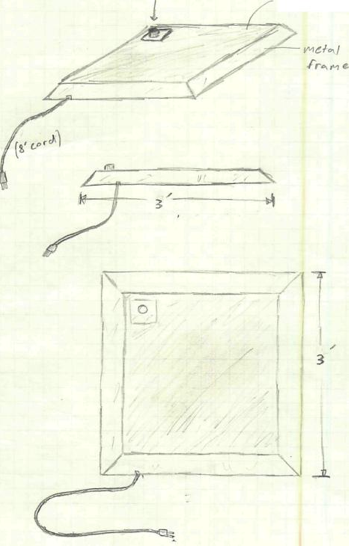 metal
frame
(8' cord)
3'
3'